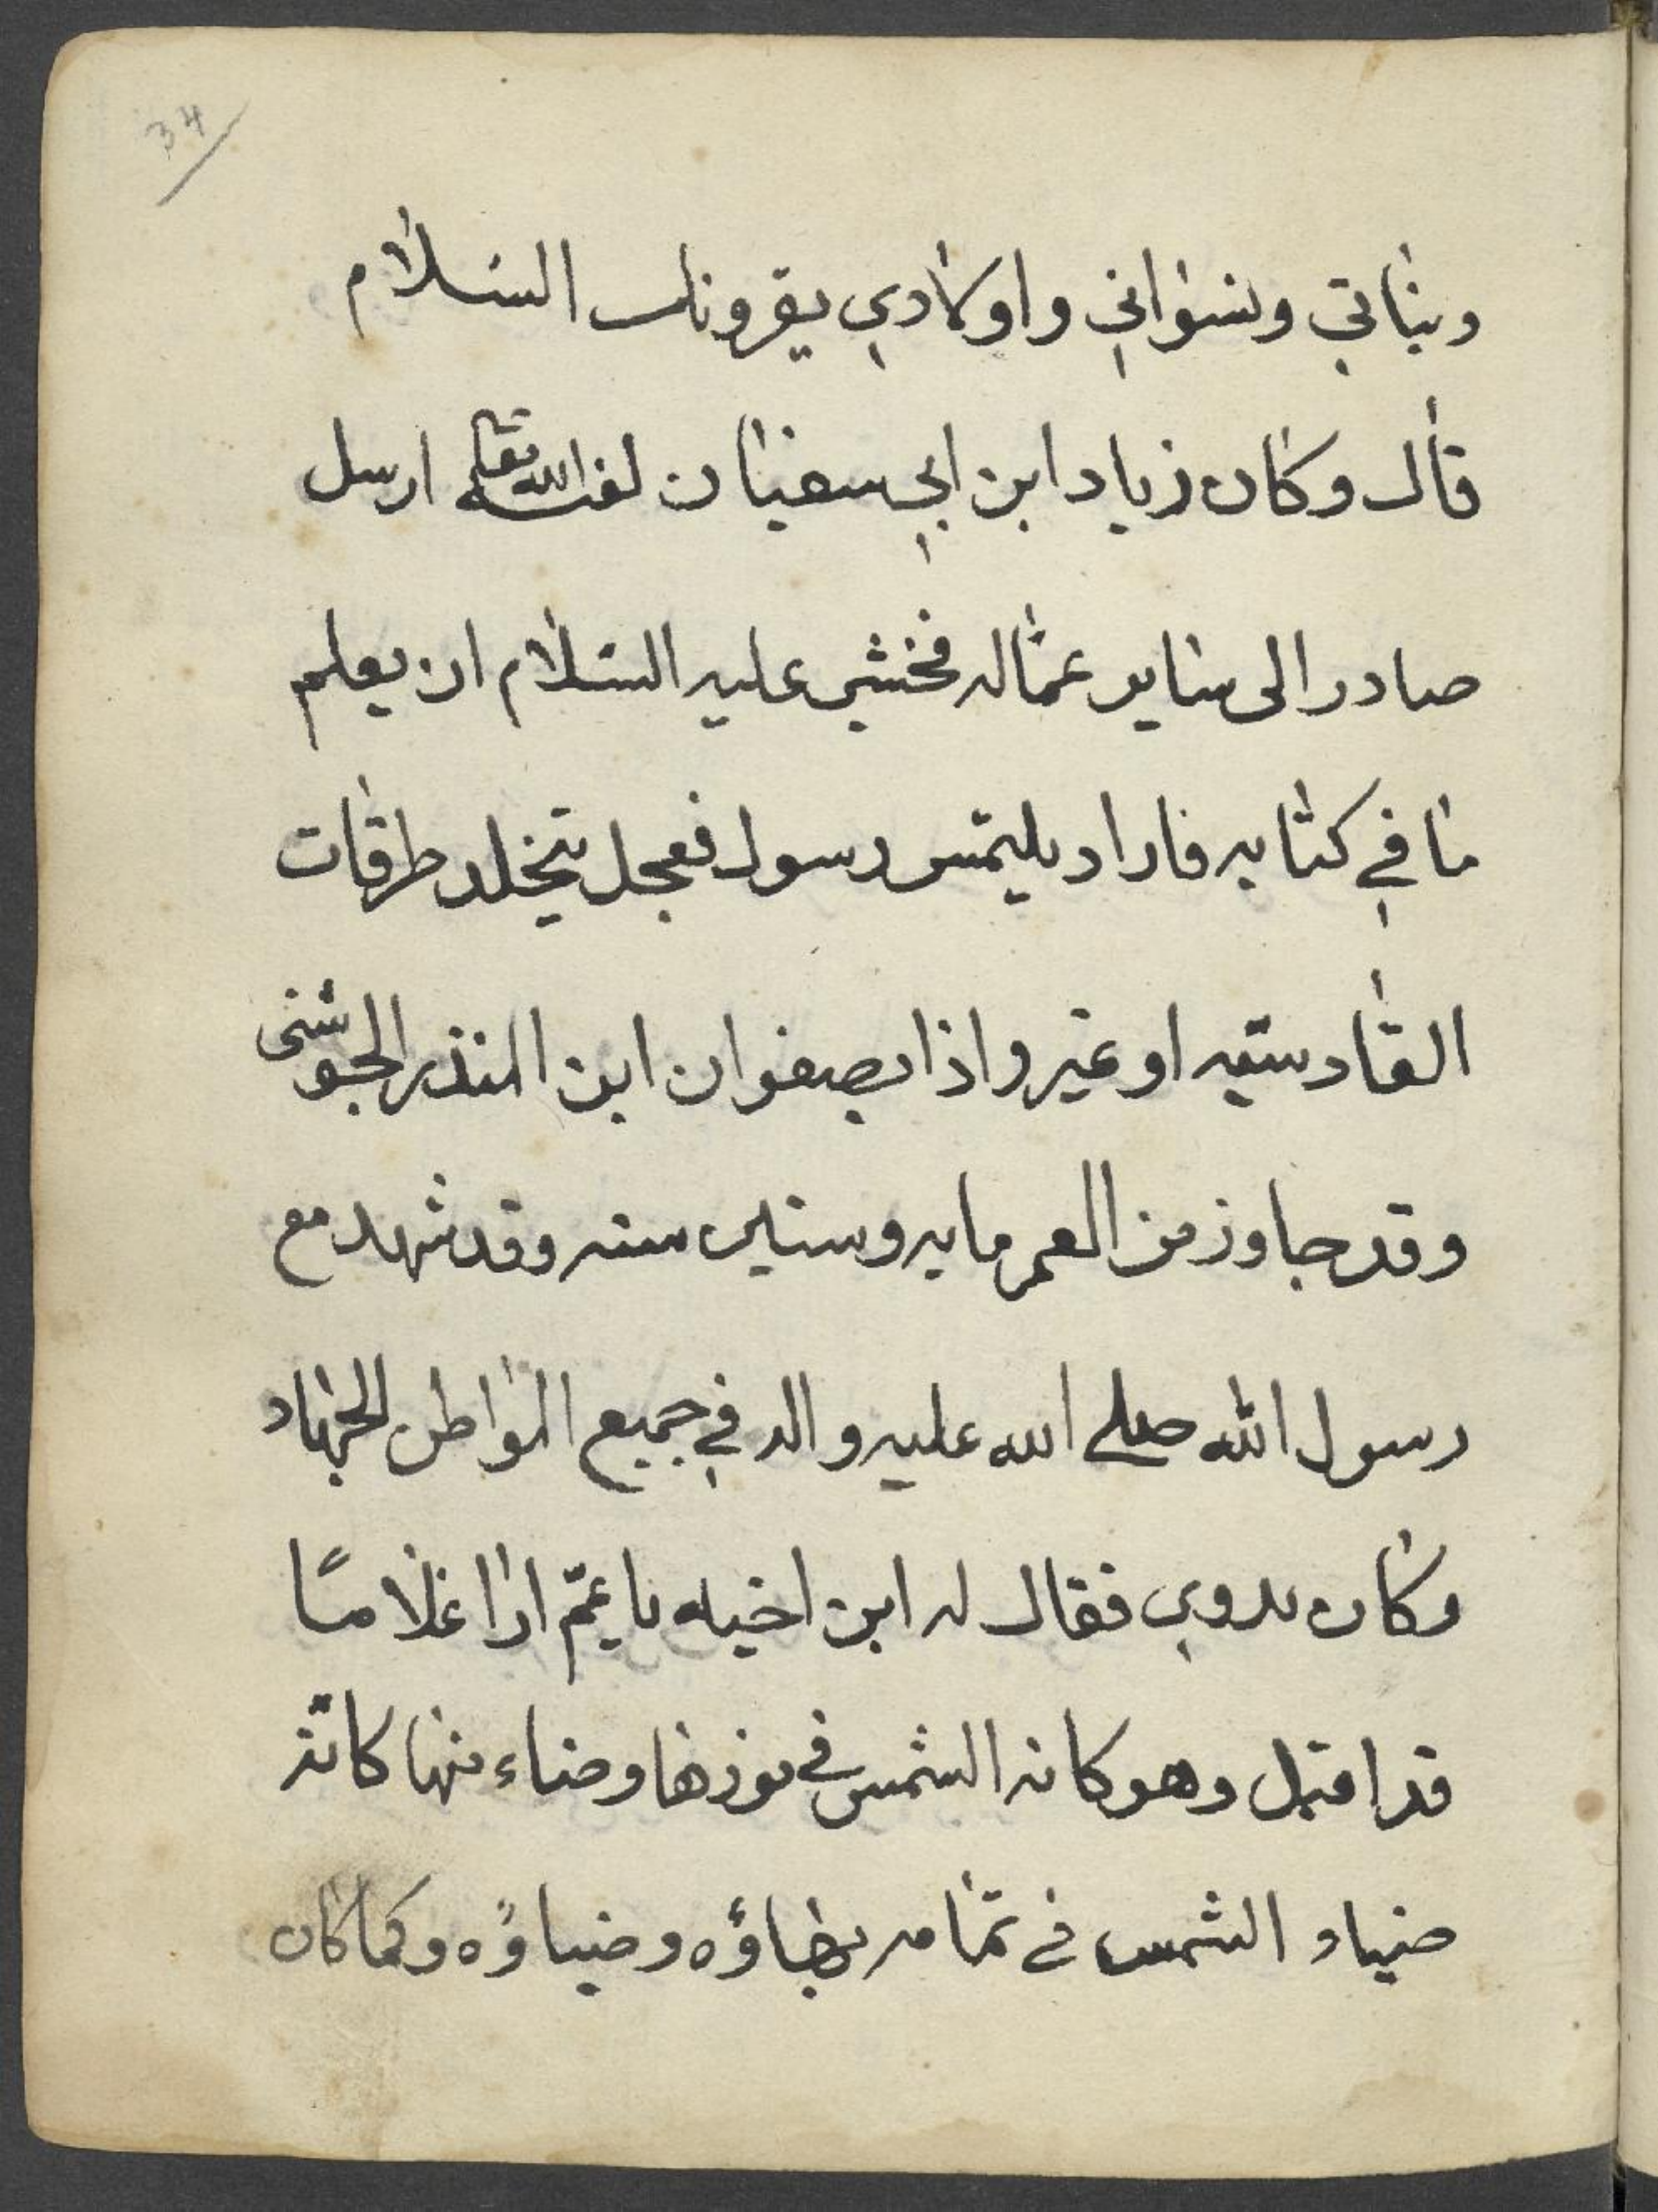 34
وبناتي ونسواني واولادي يقرونك السلام
قال وكان زياد ابن ابي سفيان لعنه الله تعالى ارسل
صادر الى ساير عماله فخشي عليه السلام ان يعلم
ما في كتابه فاراد يليتمس رسول فعجل يتخلد طرقات
القادسيه او غير واذا بصفوان ابن المنذر الجوشنى
وقد جاوز من العمر مايه وستين سنه وقد شهد مع
رسول الله صلى الله عليه واله في جميع المواطن الجهاد
وكان بدوي فقال له ابن اخيه يا عم ارا غلامًا
قد اقبل وهو كانه الشمس في نورها وضاء منها كانه
ضياء الشمس في تمامه بهاؤه وضياؤه وكما كان